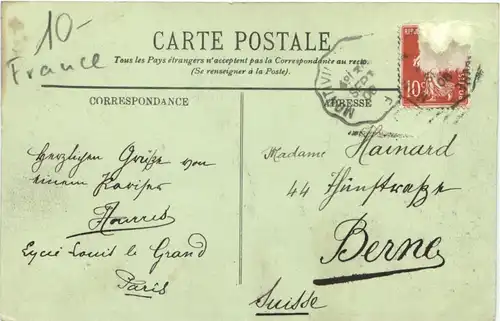 10-
France
CARTE POSTALE
Tous les Pays étrangers n'acceptent pas la Correspondance au recto.
(Se renseigner à la Poste).
CORRESPONDANCE
ADRESSE
10c
Herzlichen Grüße von
einem Pariser
Harris
Lycée Louis le Grand
Paris
Madame Hainard
44 Thunstraße
Berne
Suisse